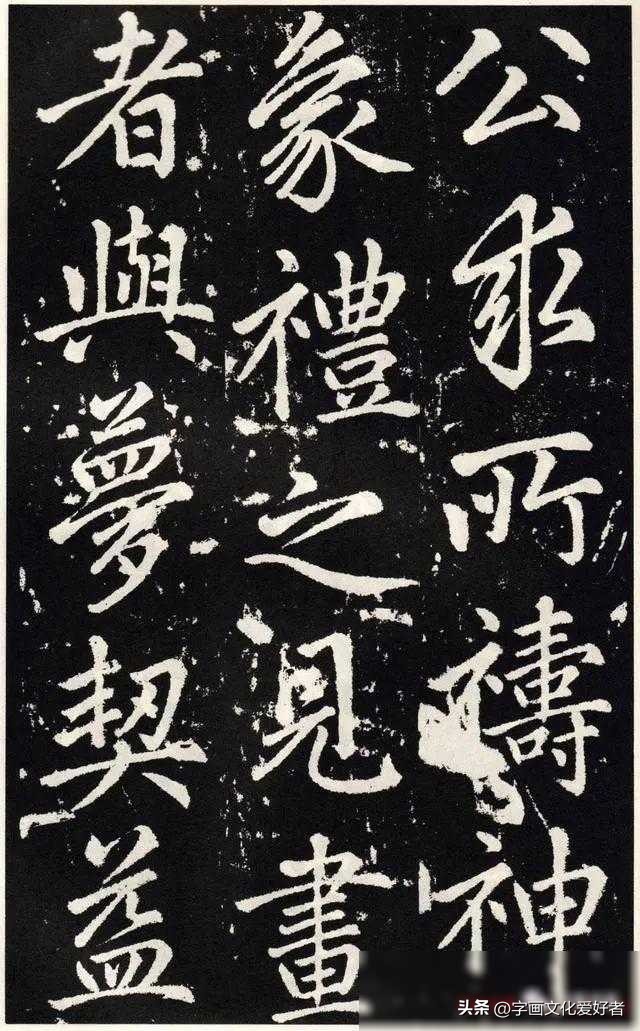 公求所禱神
象禮之見畫
者與夢契益
头条 @字画文化爱好者